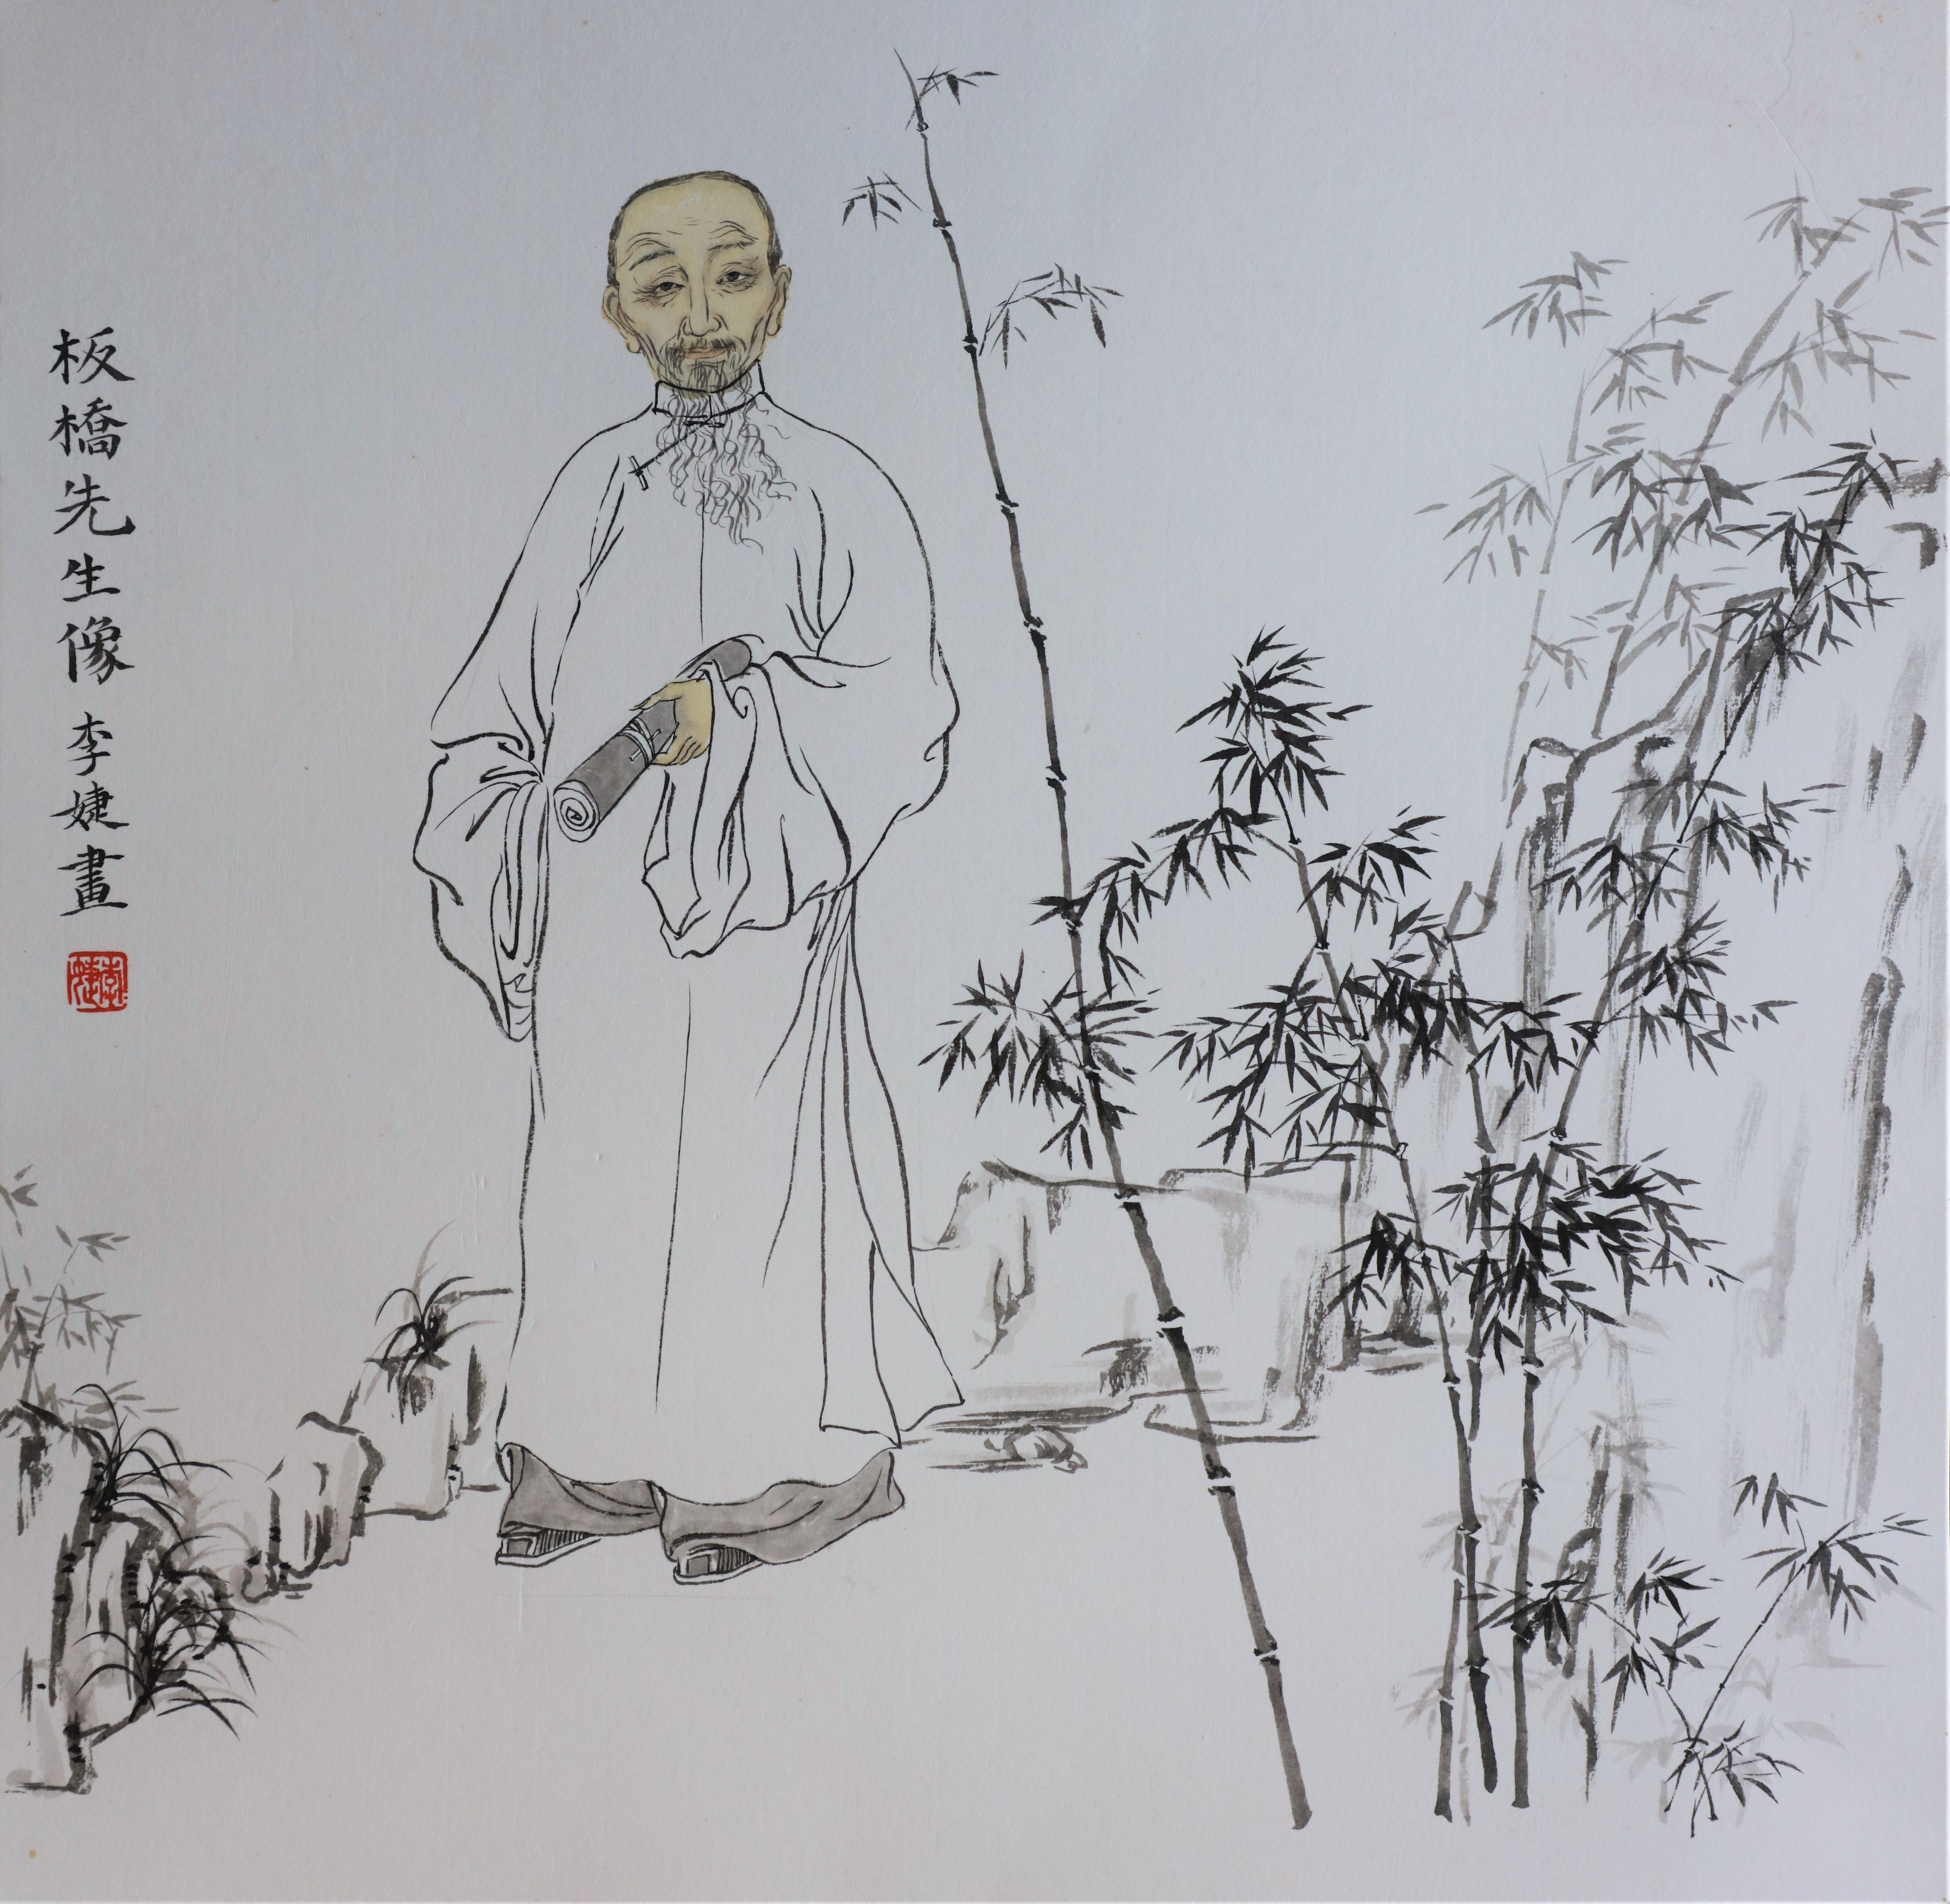 板橋先生像 李婕畫
李婕